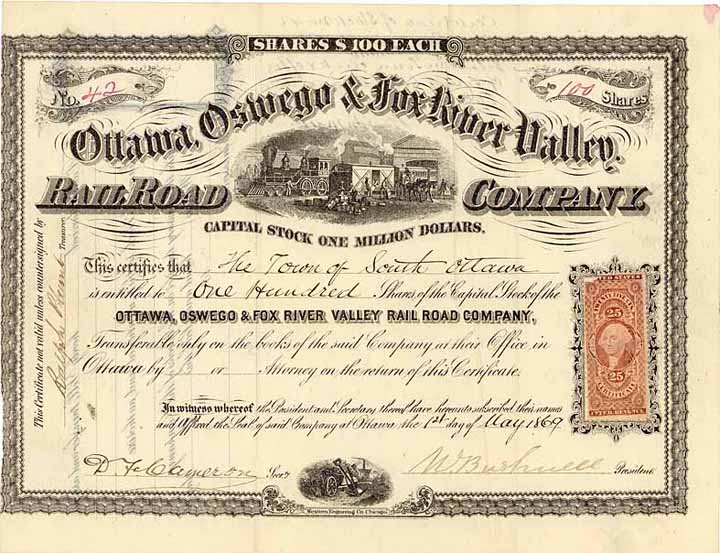 SHARES $100 EACH
No. 42
100 Shares
Ottawa, Oswego & Fox River Valley.
RAIL ROAD COMPANY.
CAPITAL STOCK ONE MILLION DOLLARS.
This certifies that The Town of South Ottawa
is entitled to One Hundred Shares of the Capital Stock of the
OTTAWA, OSWEGO & FOX RIVER VALLEY RAIL ROAD COMPANY,
Transferable only on the books of the said Company at their Office in
Ottawa by or Attorney on the return of this Certificate.
In witness whereof the President and Secretary thereof have hereunto subscribed their names
and affixed the Seal of said Company at Ottawa the 1st day of May 1869
D F Cameron Secr'y
W Bushnell President
Western Engraving Co. Chicago
This Certificate not valid unless countersigned by
Ralph Plumb Treasurer
25
25
CERTIFICATE
U.S. INTER. REVENUE